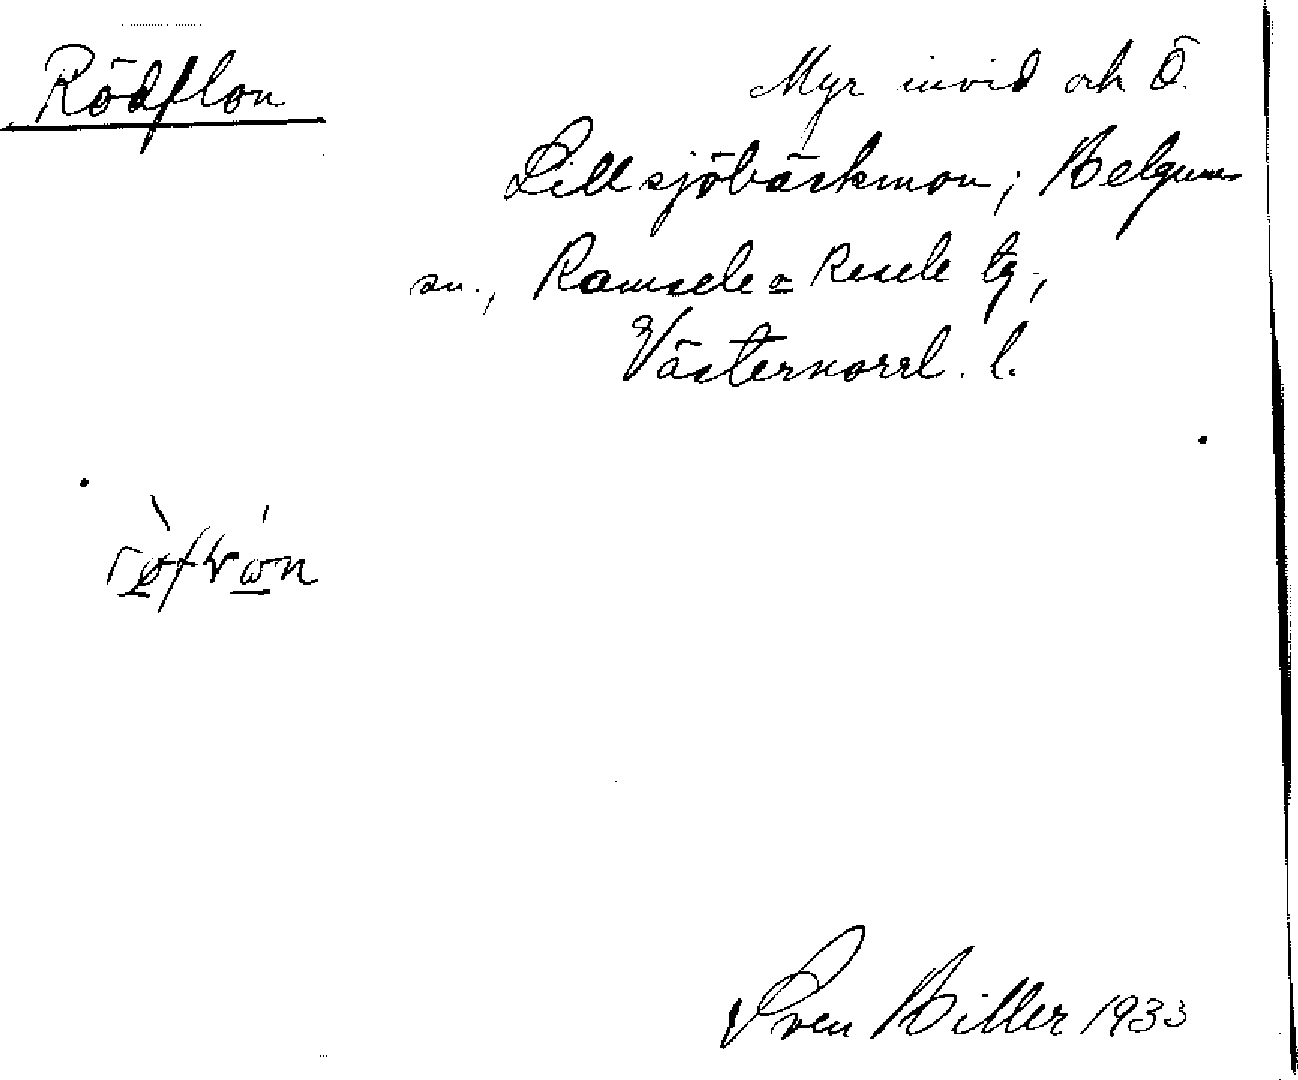 Rödflon
Myr invid och Ö.
Lillsjöbäckmon; Helgums
sn., Ramsele = Resele tg.,
Västernorrl. l.
Sven Biller 1933